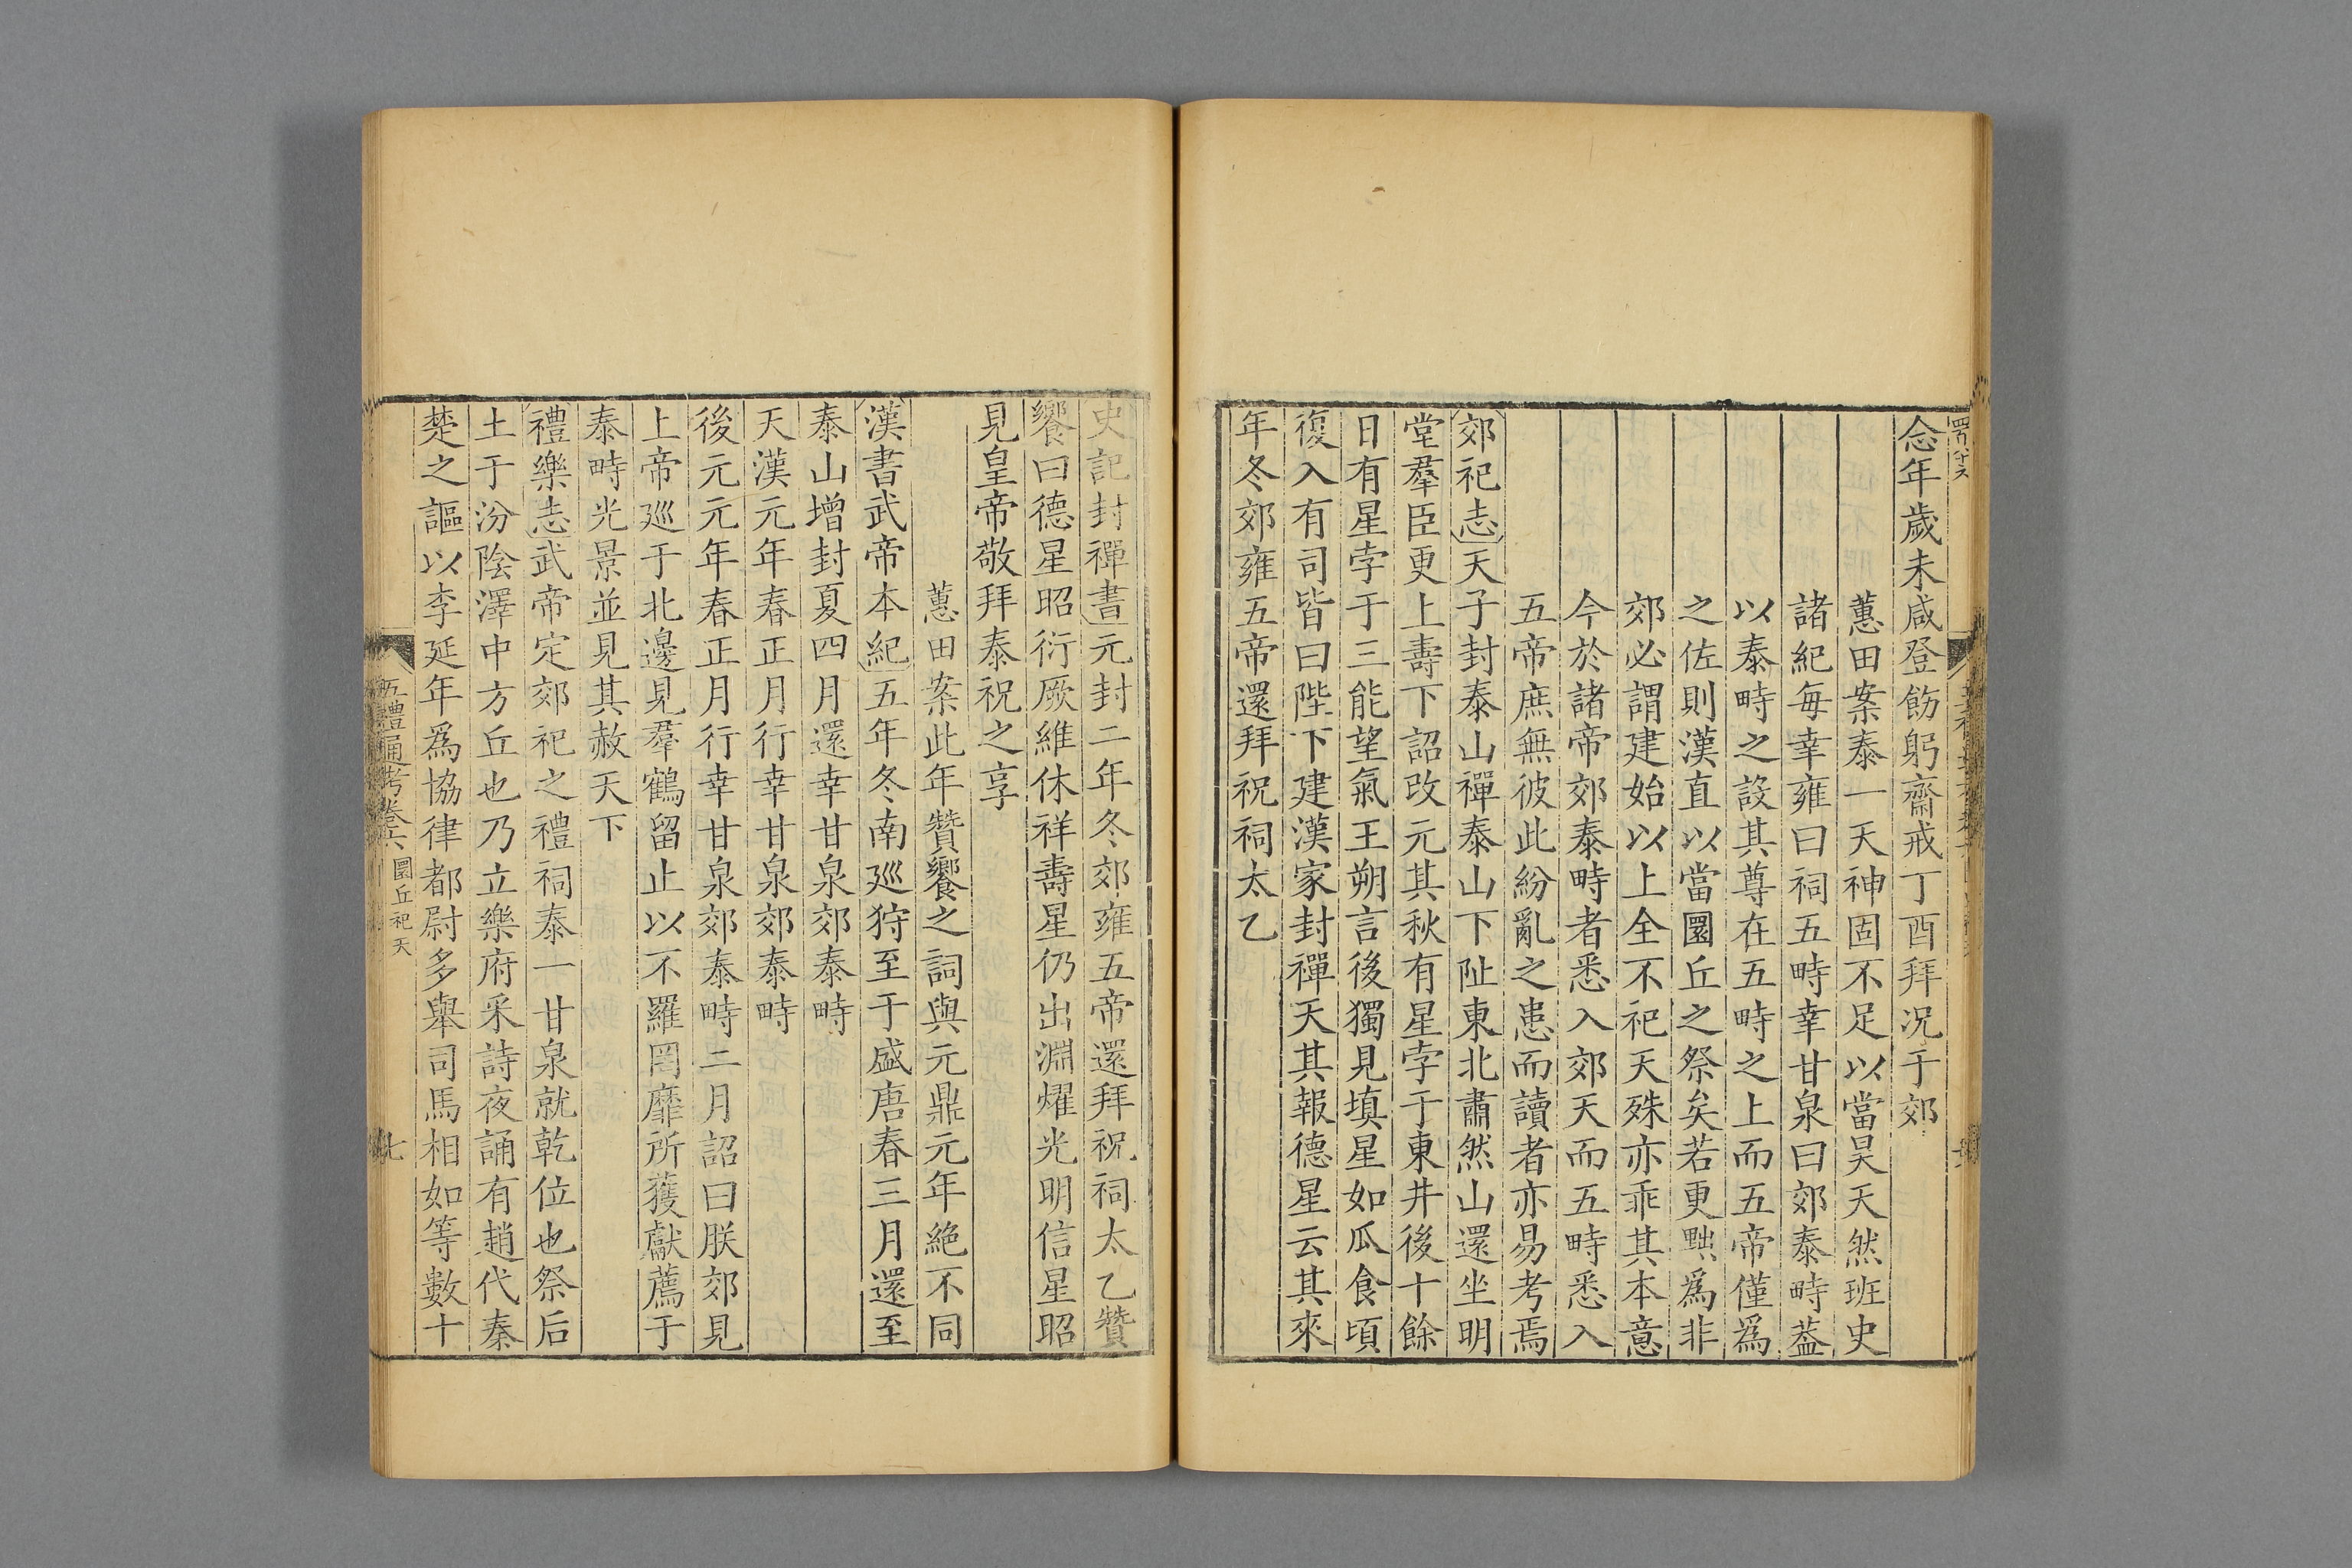 念年歲未咸登飭躬齋戒丁酉拜况于郊
蕙田案泰一天神固不足以當昊天然班史
諸紀每幸雍曰祠五畤幸甘泉曰郊泰畤蓋
以泰畤之設其尊在五畤之上而五帝僅爲
之佐則漢直以當圜丘之祭矣若更黜爲非
郊必謂建始以上全不祀天殊亦乖其本意
今於諸帝郊泰畤者悉入郊天而五畤悉入
五帝庶無彼此紛亂之患而讀者亦易考焉
郊祀志天子封泰山禪泰山下阯東北肅然山還坐明
堂羣臣更上壽下詔改元其秋有星孛于東井後十餘
日有星孛于三能望氣王朔言後獨見填星如瓜食頃
復入有司皆曰陛下建漢家封禪天其報德星云其來
年冬郊雍五帝還拜祝祠太乙
史記封禪書元封二年冬郊雍五帝還拜祝祠太乙贊
饗曰德星昭衍厥維休祥壽星仍出淵燿光明信星昭
見皇帝敬拜泰祝之享
蕙田案此年贊饗之詞與元鼎元年絶不同
漢書武帝本紀五年冬南巡狩至于盛唐春三月還至
泰山增封夏四月還幸甘泉郊泰畤
天漢元年春正月行幸甘泉郊泰畤
後元元年春正月行幸甘泉郊泰畤二月詔曰朕郊見
上帝巡于北邊見羣鶴留止以不羅罔靡所獲獻薦于
泰畤光景並見其赦天下
禮樂志武帝定郊祀之禮祠泰一甘泉就乾位也祭后
土于汾陰澤中方丘也乃立樂府采詩夜誦有趙代秦
楚之謳以李延年爲協律都尉多舉司馬相如等數十
五禮通考卷六 圜丘祀天
七